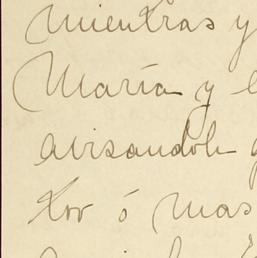 mientras y
María y
avisandole
ó mas